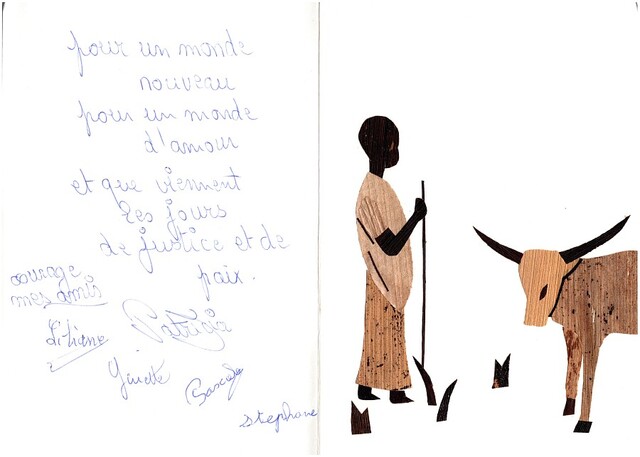 pour un monde
nouveau
pour un monde
d'amour
et que viennent
les jours
de justice et de
paix.
courage
mes amis
Liliane
Patrizia
Pascale
stephane